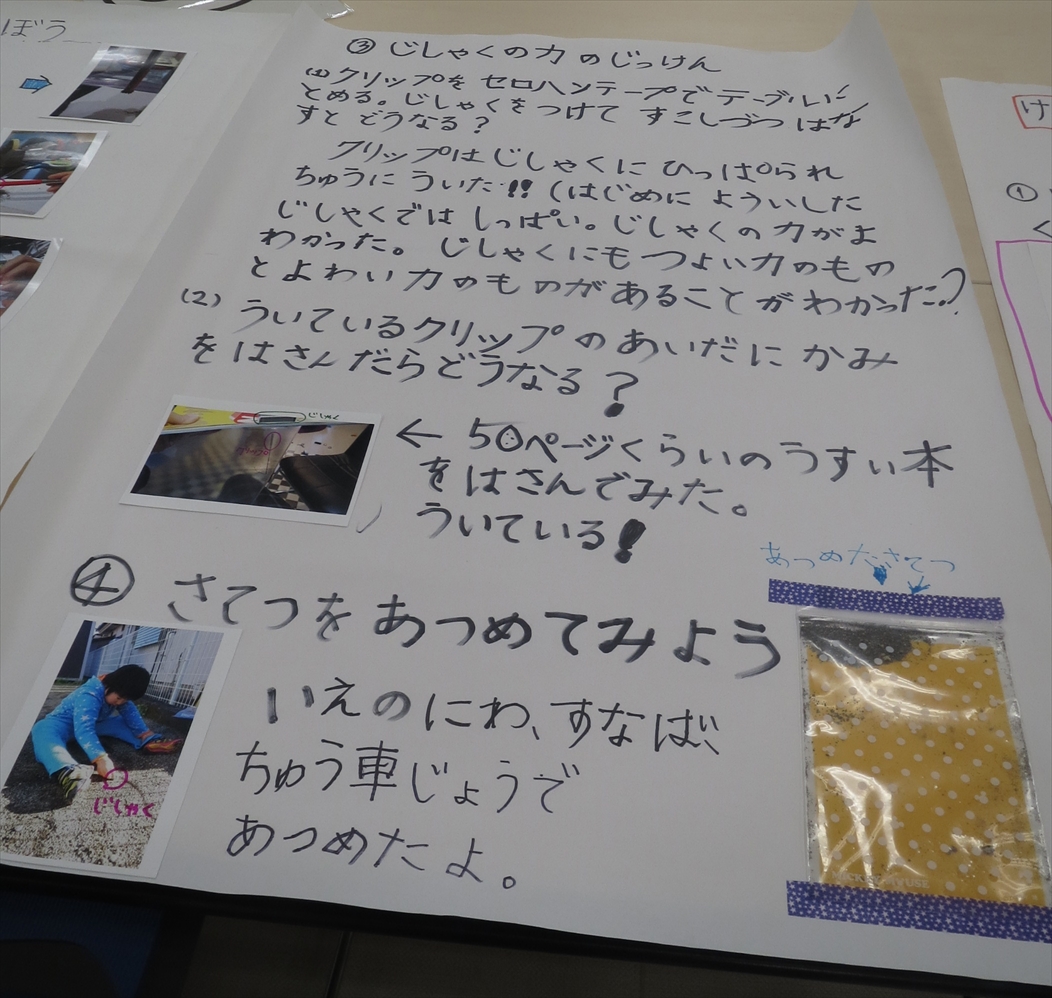 ぼう
③ じしゃくの力のじっけん
(1) クリップを セロハンテープで テーブルに
とめる。じしゃくをつけて すこしづつ はな
すと どうなる?
クリップはじしゃくに ひっぱられ
ちゅうに ういた!! (はじめに ようい した
じしゃくでは しっぱい。じしゃくの力がよ
わかった。 じしゃくにも つよい力のもの
とよわい力のものがあることがわかった。)
(2) ういているクリップのあいだに かみ
をはさんだらどうなる?
じしゃく
← 50ページくらいのうすい本
をはさんでみた。
ういている!
あつめたさてつ
④ さてつをあつめてみよう
いえのにわ、すなば、
ちゅう車じょうで
あつめたよ。
じしゃく
け
①
く